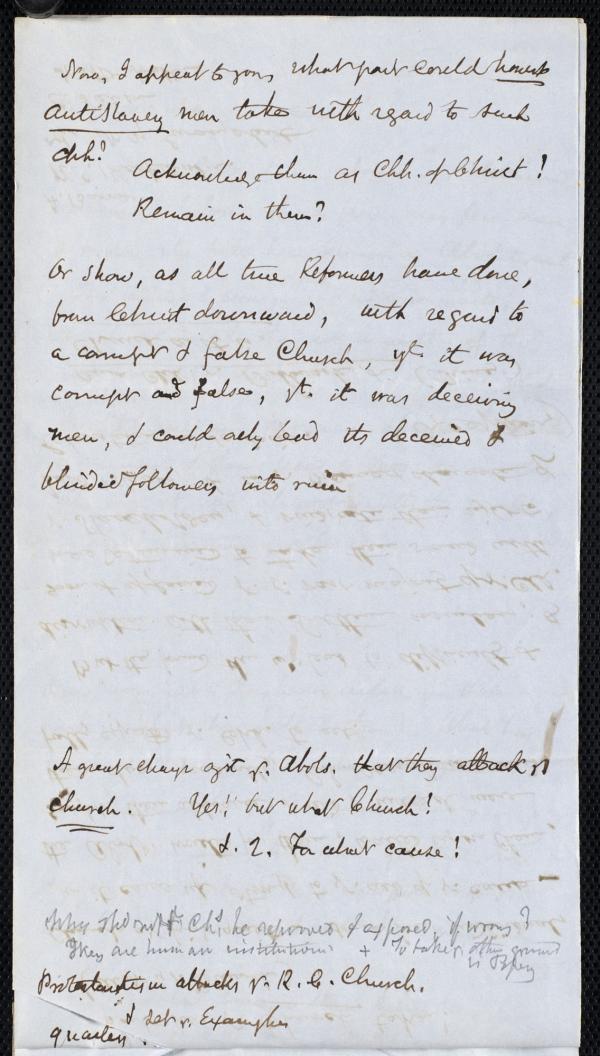 Now, I appeal to you, what part could honest
antislavery men take with regard to such
chh!
Acknowledge them as Chh. of Christ!
Remain in them?
Or show, as all true Reformers have done,
from Christ downward, with regard to
a corrupt & false Church, yt. it was
corrupt and false, yt. it was deceiving
men, & could only lead its deceived &
blinded followers into ruin
A great charge agst ye. Abols. that they attack ye
Church. Yes! but what Church!
&. 2. For what cause!
Why shd not ye Chs. be reproved & exposed, if wrong?
They are human institutions + To take ye other ground
is Popery
Protestantism attacks ye. R. C. Church.
& set ye. Example
Quakers.